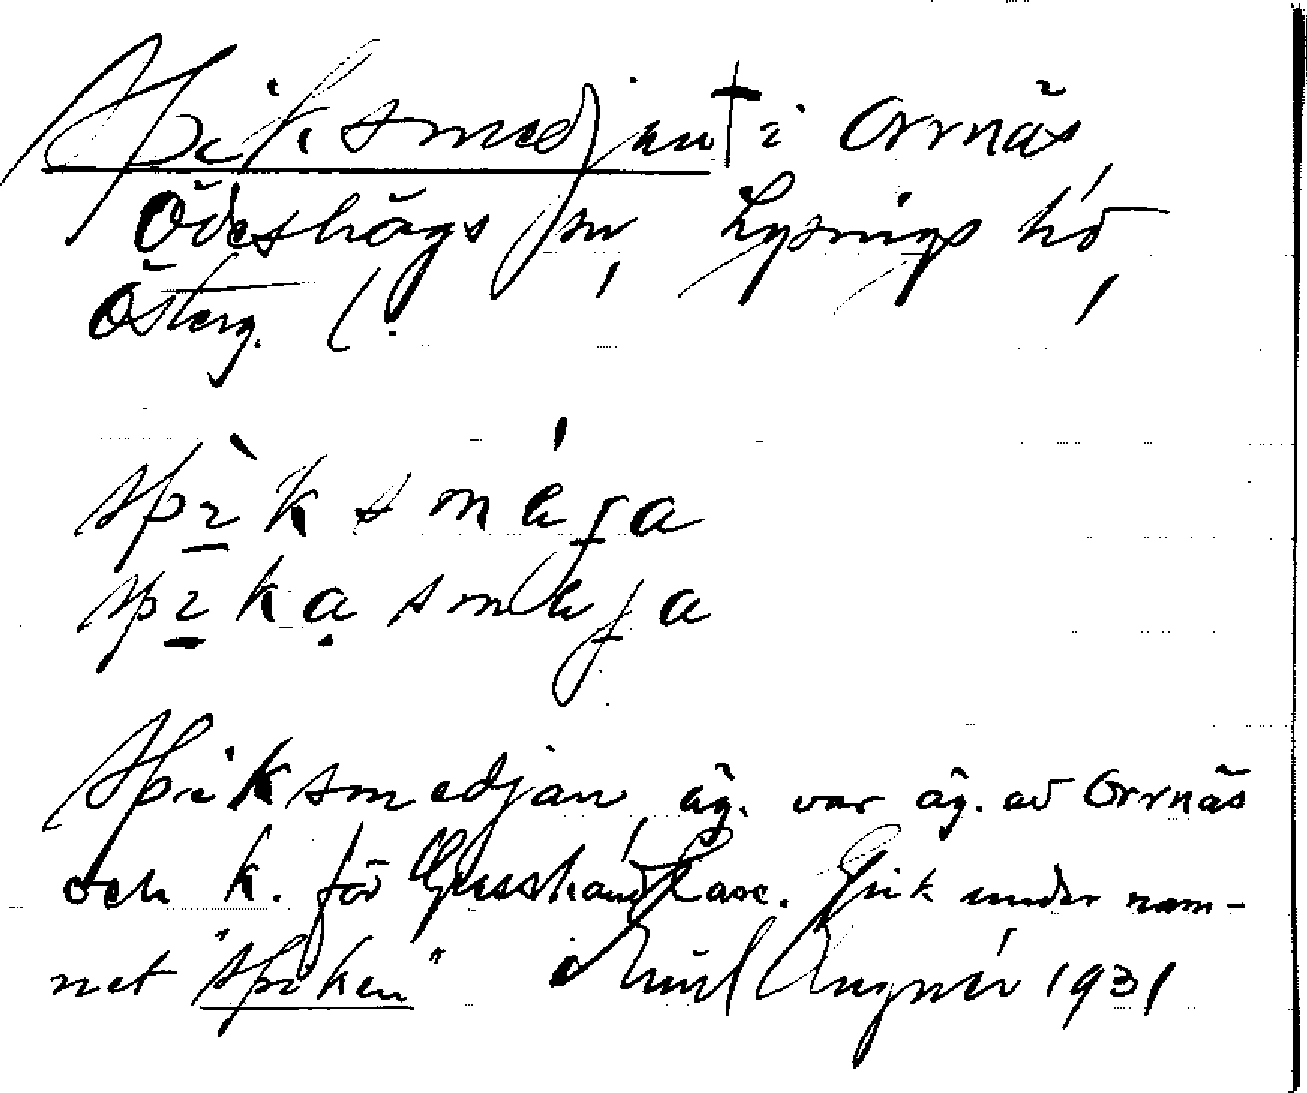 Spiksmedjan† i Orrnäs,
Ödeshögs sn, Lysings hd,
Österg.
spìksméja
spikasméja
Spiksmedjan, äg. var äg. av Orrnäs
och k. för Lasse. Gick under nam-
net "Spiken" 1931